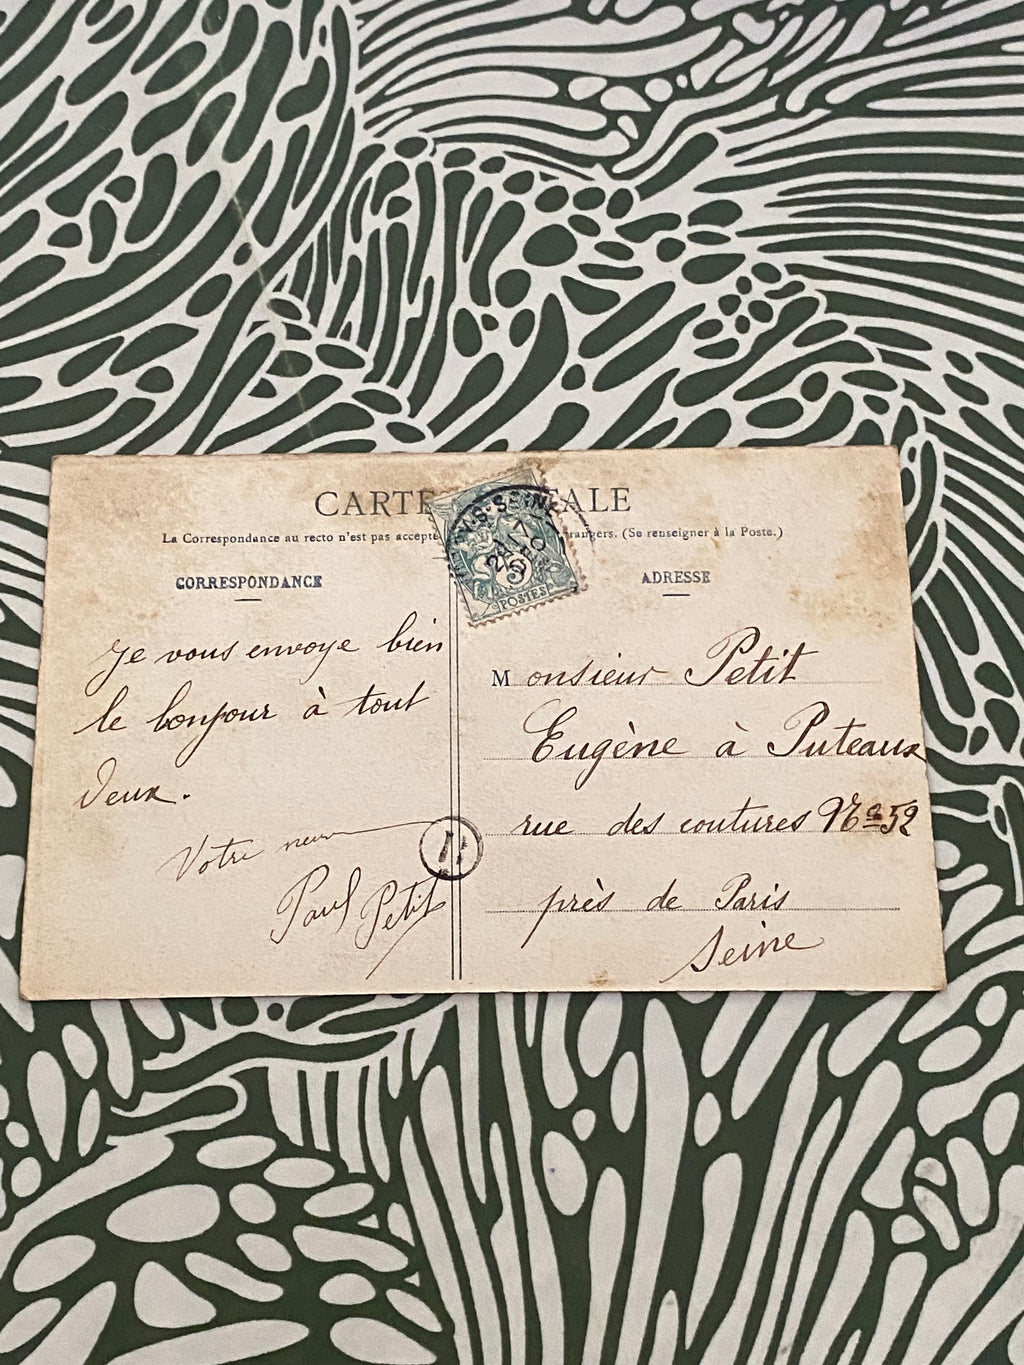 CARTE
ALE
La Correspondance au recto n'est pas accepte
rangers. (Se renseigner à la Poste.)
CORRESPONDANCE
ADRESSE
S-SEINE
5
POSTES
Je vous envoye bien
le bonjour à tout
deux.
Votre neveu
Paul Petit
Monsieur Petit
Eugène à Puteaux
rue des coutures No 52
près de Paris
Seine